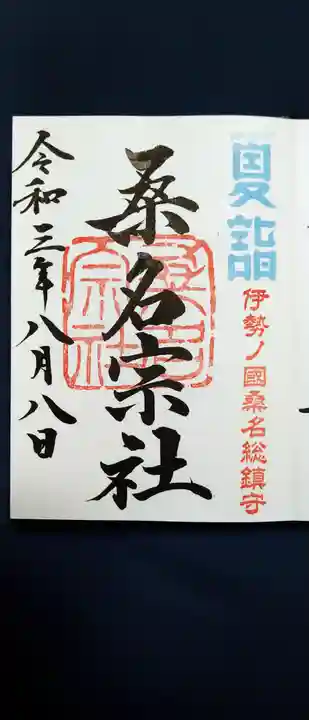 夏詣
伊勢ノ國桑名総鎮守
桑名宗社
桑名宗社
令和三年八月八日